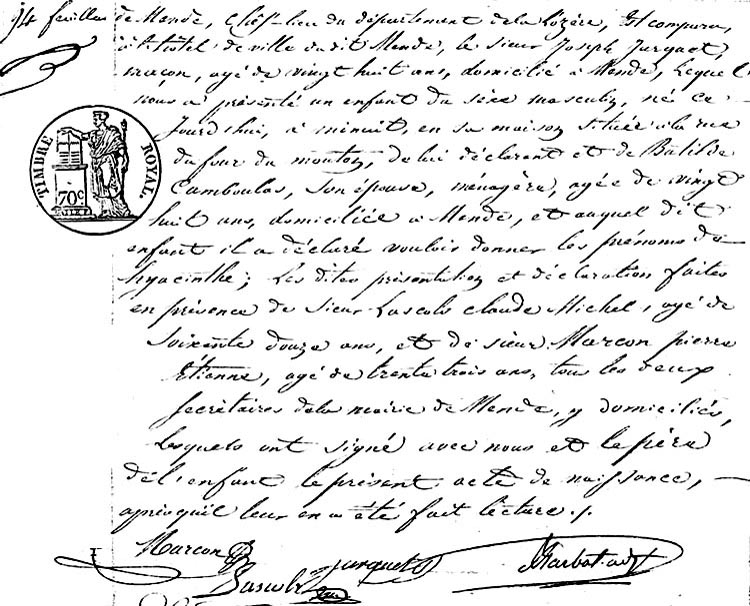 94 feuillets de Mende, Chef-lieu du département de la Lozère, Est comparu,
à l'hôtel de ville dudit Mende, le sieur Joseph Jurquet,
maçon, agé de vingt huit ans, domicilié à Mende, Lequel
nous a présenté un enfant du sèxe masculin, né ce
Jourd'hui, à minuit, en sa maison située à la rue
du four du mouton, de lui déclarant et de Batilde
Camboulas, son épouse, ménagère, agée de vingt
huit ans, domiciliée à Mende, et auquel dit
enfant il a déclaré vouloir donner les prénoms de
hyacinthe; Les dites présentation et déclaration faites
en présence de Sieur Lascols Claude Michel, agé de
soixante douze ans, et de sieur Marcon pierre
Étienne, agé de trente trois ans, tous les deux
secrétaires de la mairie de Mende, y domiciliés,
Lesquels ont signé avec nous et le père
de l'enfant le présent acte de naissance,
après qu'il leur en a été fait lecture./.
TIMBRE ROYAL.
70c
Marcon
Lascols
jurquet